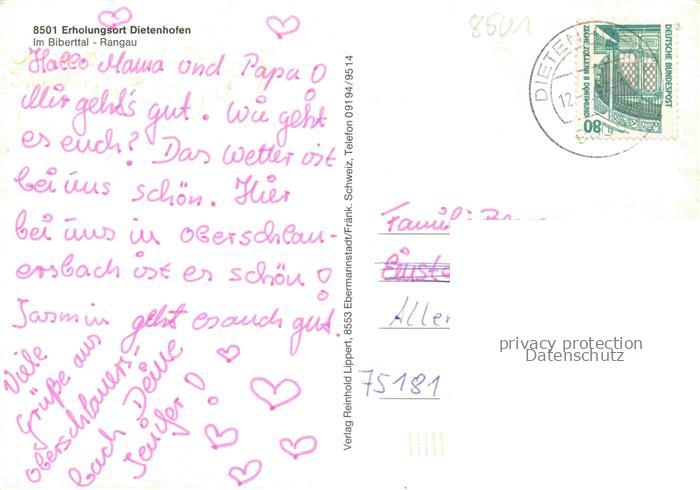 8501 Erholungsort Dietenhofen
Im Biberttal - Rangau
Hallo Mama und Papa!
Mir geht's gut. Wie geht
es euch? Das Wetter ist
bei uns schön. Hier
bei uns in Oberschlau-
ersbach ist es schön!
Jasmin geht es auch gut.
Viele
Grüße aus
Oberschlauers-
bach Deine
Jenifer!
Verlag Reinhold Lippert, 8553 Ebermannstadt/Fränk. Schweiz, Telefon 09194/9514
8501
DIETEN
12.
DEUTSCHE BUNDESPOST
ZECHE ZOLLERN II DORTMUND
80
Famili
Aller
privacy protection
Datenschutz
75181